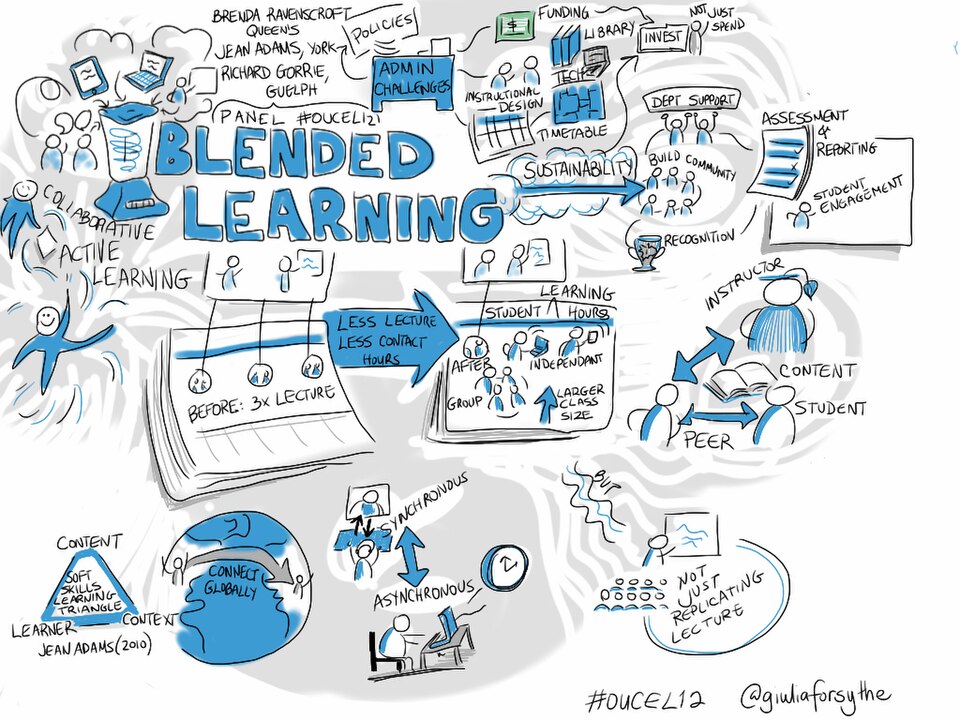 BRENDA RAVENSCROFT
QUEEN'S
JEAN ADAMS, YORK
RICHARD GORRIE,
GUELPH
PANEL #OUCEL12
BLENDED
LEARNING
POLICIES
ADMIN
CHALLENGES
$
FUNDING
LIBRARY
TECH
INSTRUCTIONAL
DESIGN
TIMETABLE
INVEST
NOT JUST
SPEND
SUSTAINABILITY
DEPT SUPPORT
BUILD COMMUNITY
RECOGNITION
ASSESSMENT
&
REPORTING
STUDENT
ENGAGEMENT
COLLABORATIVE
ACTIVE
LEARNING
BEFORE: 3x LECTURE
LESS LECTURE
LESS CONTACT
HOURS
LEARNING
STUDENT HOURS
AFTER
INDEPENDANT
GROUP
LARGER
CLASS
SIZE
INSTRUCTOR
CONTENT
STUDENT
PEER
CONTENT
SOFT
SKILLS
LEARNING
TRIANGLE
LEARNER
CONTEXT
JEAN ADAMS (2010)
CONNECT
GLOBALLY
SYNCHRONOUS
ASYNCHRONOUS
BUT
NOT
JUST
REPLICATING
LECTURE
#OUCEL12
@giuliaforsythe